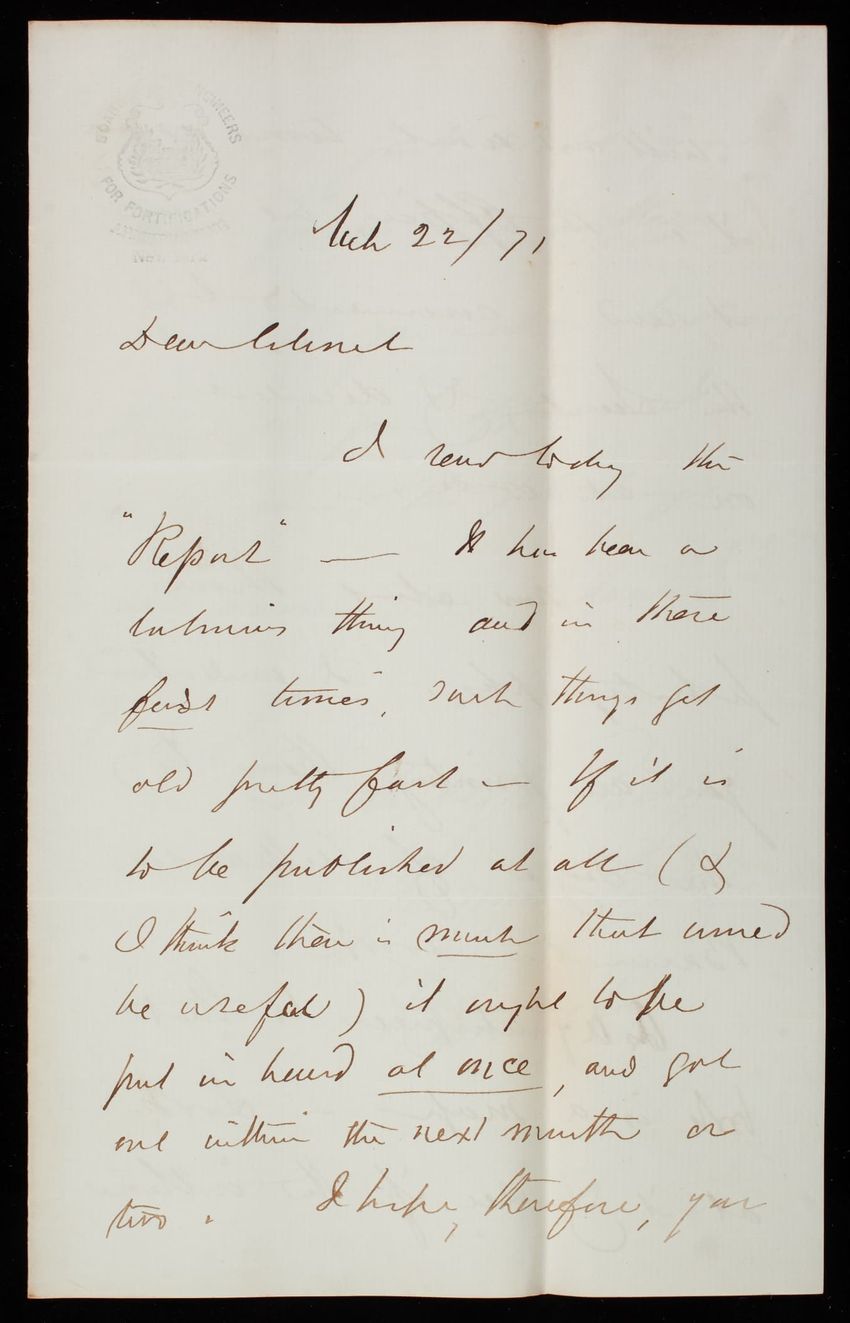 BOARD OF ENGINEERS
FOR FORTIFICATIONS
NEW YORK
Mch 22/71
Dear Colonel
I send today the
"Report" — It has been a
laborious thing and in these
fast times, such things get
old pretty fast — If it is
to be published at all (&
I think there is much that would
be useful) it ought to be
put in hand at once, and got
out within the next month or
two. I hope, therefore, you